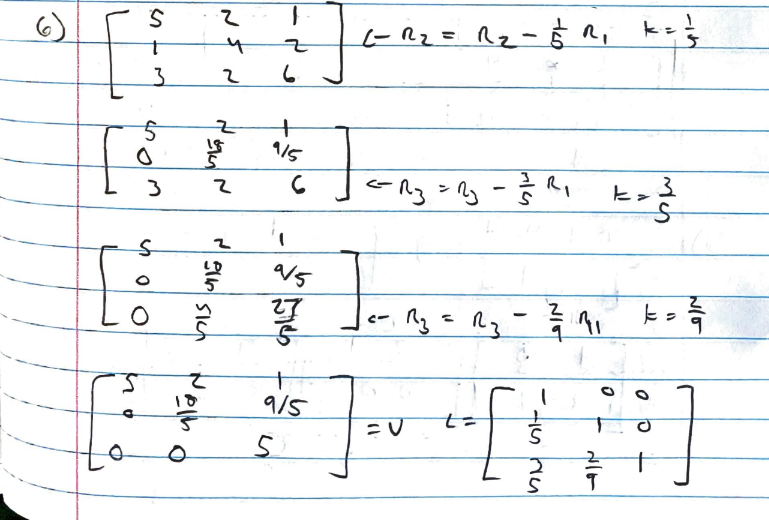 6) [ 5 2 1
1 4 2 ← R2 = R2 - 1/5 R1 k = 1/5
3 2 6 ]
[ 5 2 1
0 18/5 9/5
3 2 6 ] ← R3 = R3 - 3/5 R1 k = 3/5
[ 5 2 1
0 18/5 9/5
0 4/5 27/5 ] ← R3 = R3 - 2/9 R1 k = 2/9
[ 5 2 1
0 18/5 9/5
0 0 5 ] = U L = [ 1 0 0
1/5 1 0
3/5 2/9 1 ]